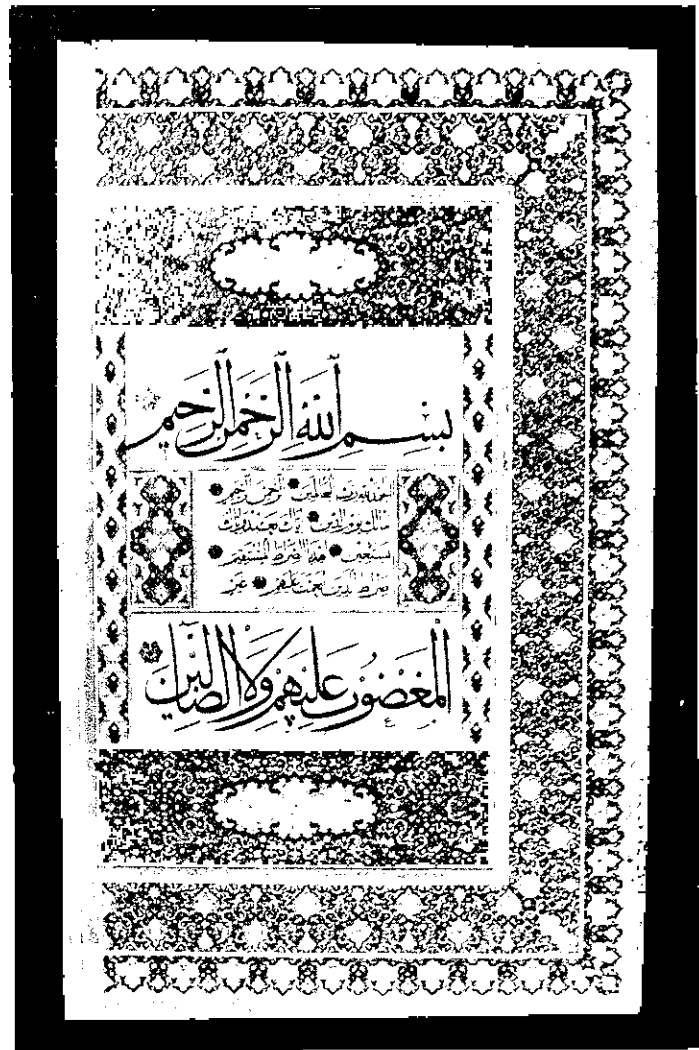 بِسْمِ اللّٰهِ الرَّحْمٰنِ الرَّحِيمِ
الحمد لله رب العالمين الرحمن الرحيم
مالك يوم الدين إياك نعبد وإياك
نستعين اهدنا الصراط المستقيم
صراط الذين أنعمت عليهم غير
الْمَغْضُوبِ عَلَيْهِمْ وَلَا الضَّالِّينَ